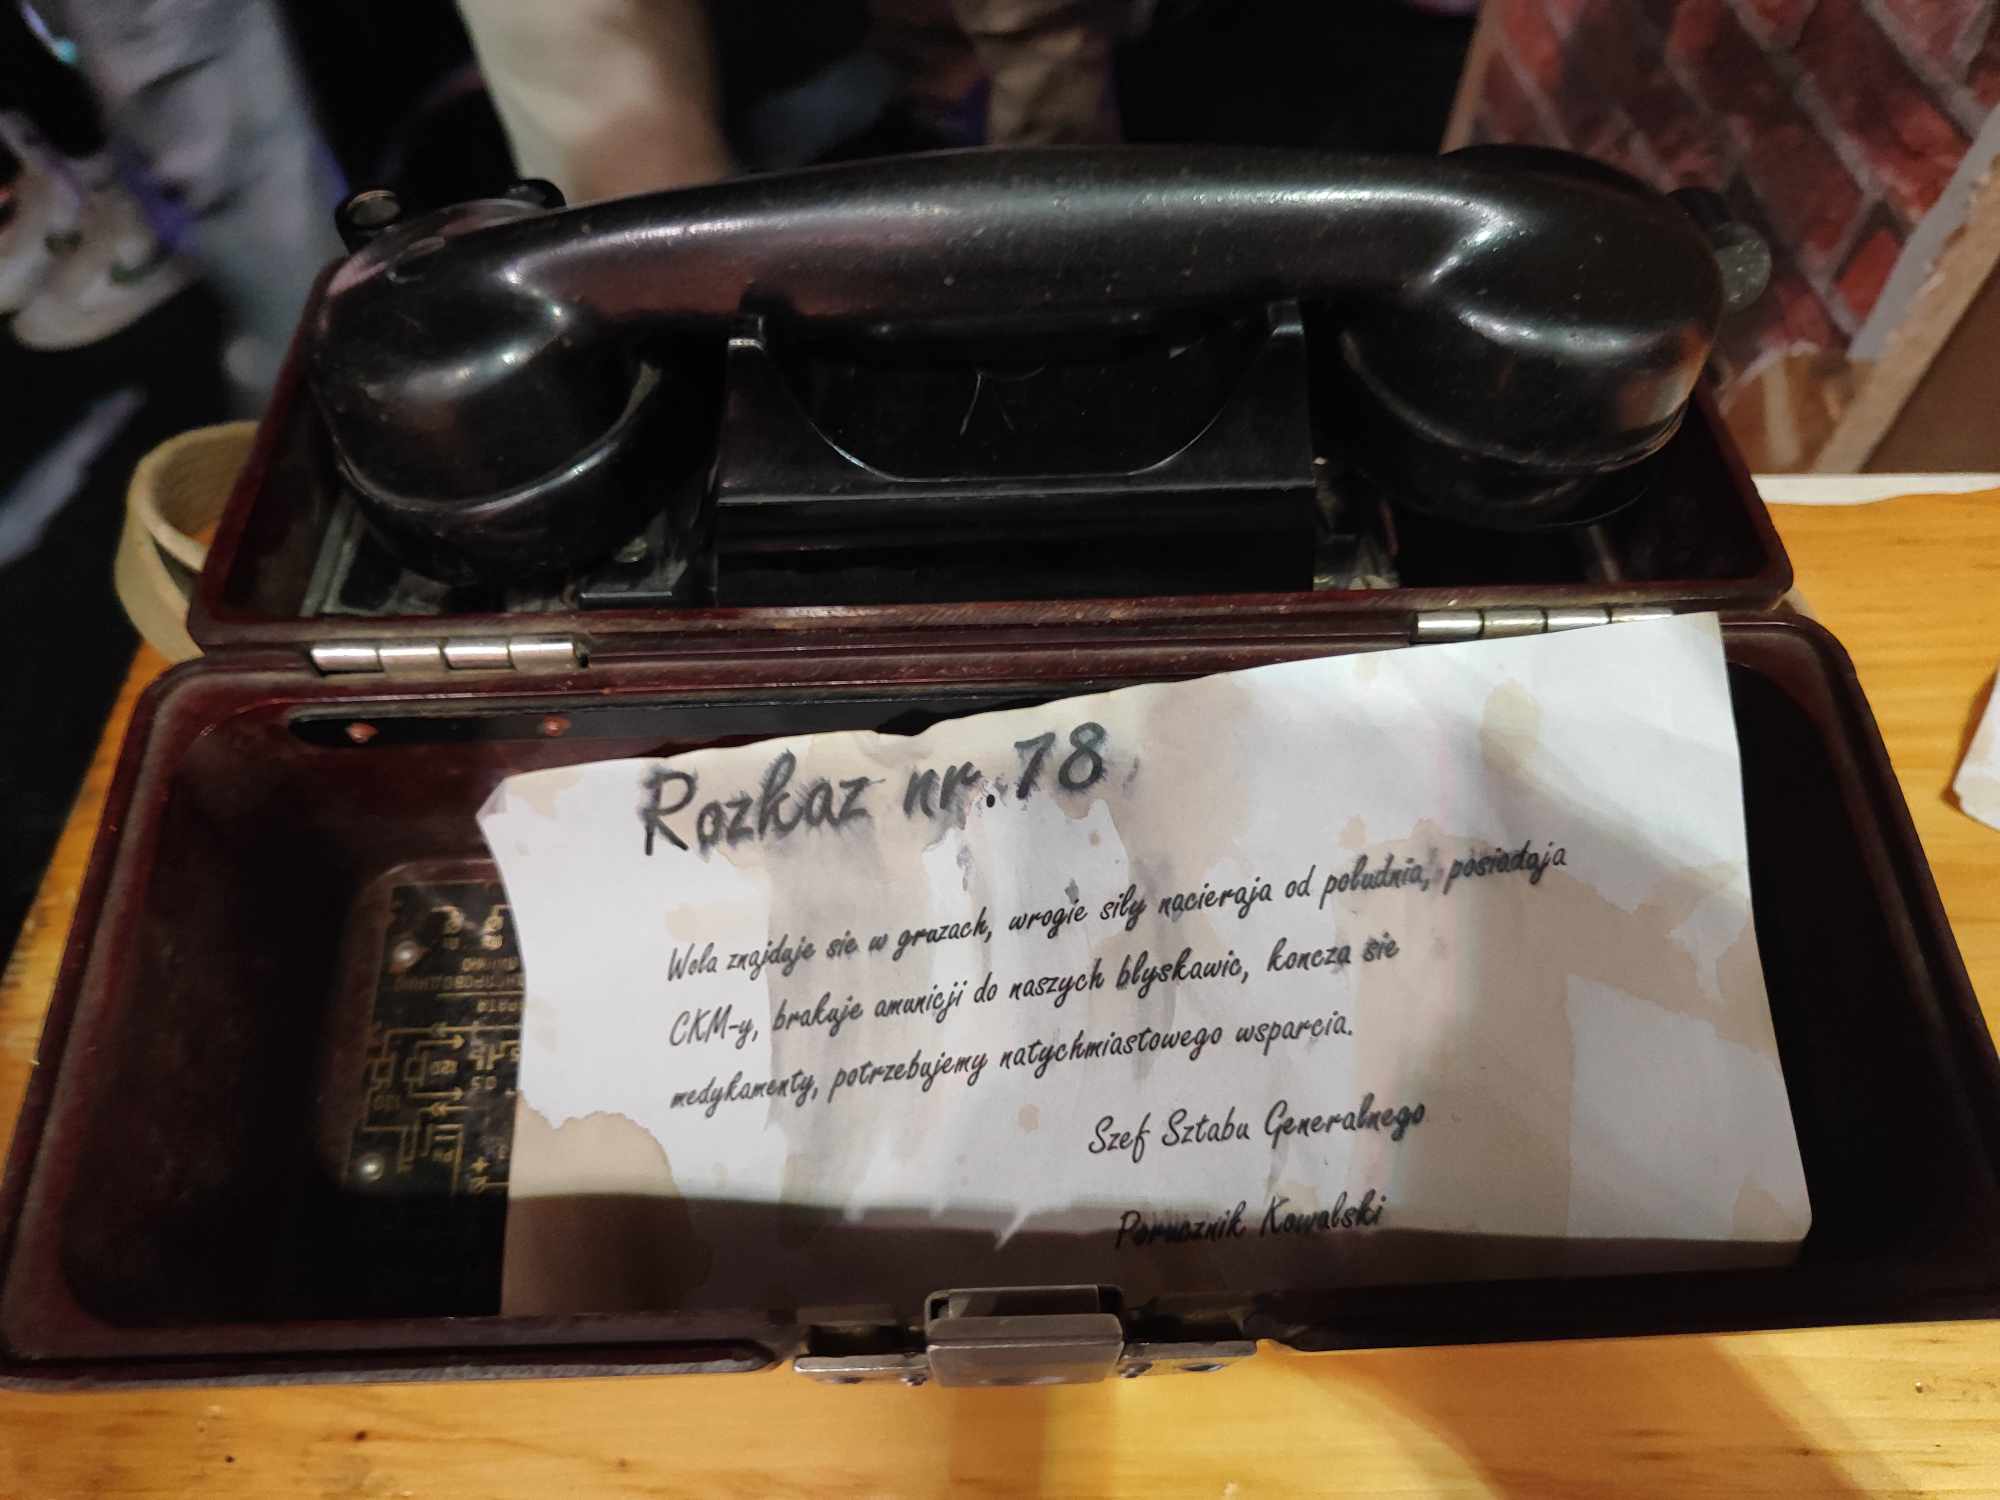 Rozkaz nr.78
Wola znajduje sie w gruzach, wrogie siły nacieraja od południa, posiadaja
CKM-y, brakuje amunicji do naszych błyskawic, koncza sie
medykamenty, potrzebujemy natychmiastowego wsparcia.
Szef Sztabu Generalnego
Porucznik Kowalski